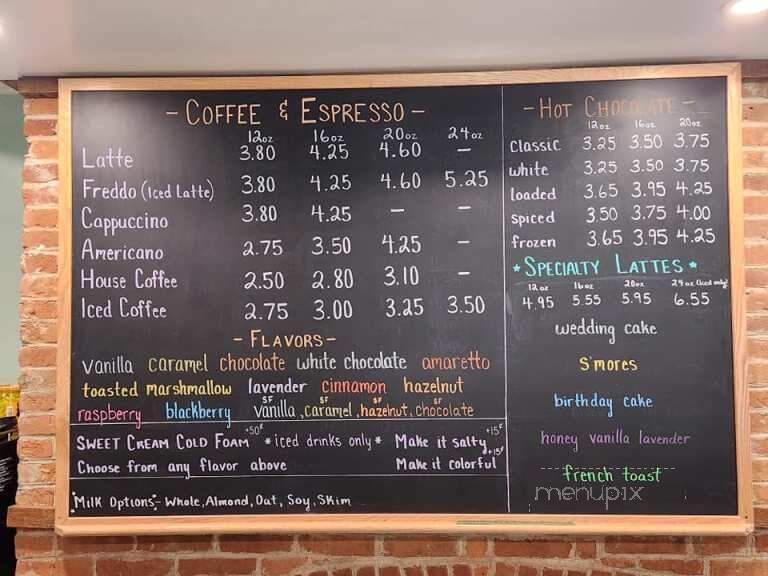 - COFFEE & ESPRESSO -
12oz 16oz 20oz 24oz
Latte 3.80 4.25 4.60 —
Freddo (Iced Latte) 3.80 4.25 4.60 5.25
Cappuccino 3.80 4.25 — —
Americano 2.75 3.50 4.25 —
House Coffee 2.50 2.80 3.10 —
Iced Coffee 2.75 3.00 3.25 3.50
- FLAVORS -
vanilla caramel chocolate white chocolate amaretto
toasted marshmallow lavender cinnamon hazelnut
raspberry blackberry SF vanilla, SF caramel, SF hazelnut, SF chocolate
SWEET CREAM COLD FOAM +50¢ *iced drinks only* Make it salty +15¢
Choose from any flavor above Make it colorful +15¢
*MILK OPTIONS* - Whole, Almond, Oat, Soy, Skim
- HOT CHOCOLATE -
12oz 16oz 20oz
classic 3.25 3.50 3.75
white 3.25 3.50 3.75
loaded 3.65 3.95 4.25
spiced 3.50 3.75 4.00
frozen 3.65 3.95 4.25
* SPECIALTY LATTES *
12oz 16oz 20oz 24oz (iced only)
4.95 5.55 5.95 6.55
wedding cake
S'mores
birthday cake
honey vanilla lavender
french toast
menupix